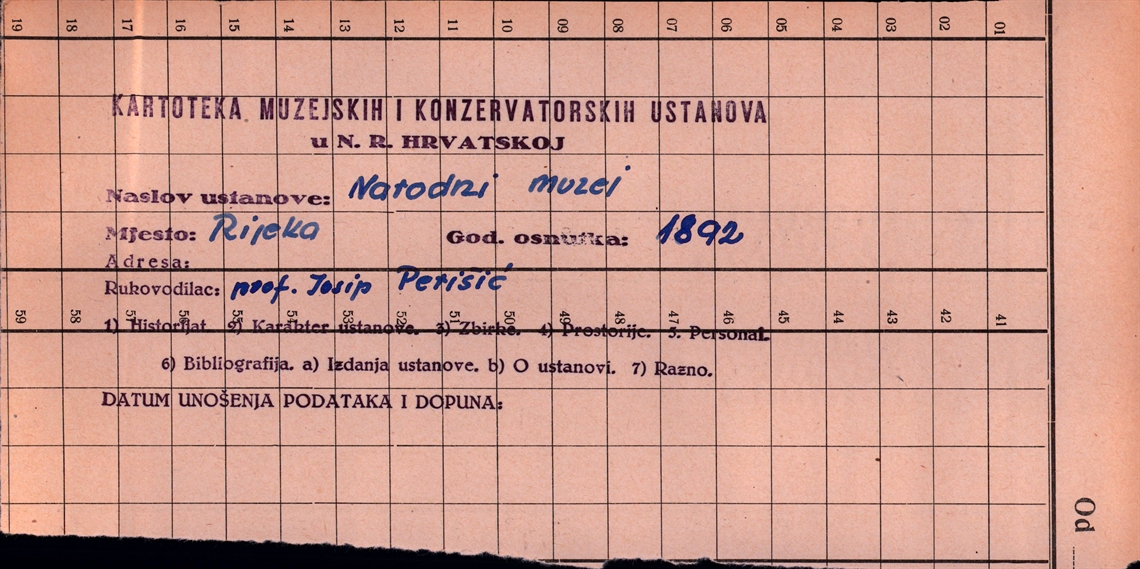 19 18 17 16 15 14 13 12 11 10 09 08 07 06 05 04 03 02 01
KARTOTEKA MUZEJSKIH I KONZERVATORSKIH USTANOVA
u N. R. HRVATSKOJ
Naslov ustanove: Narodni muzej
Mjesto: Rijeka God. osnutka: 1892
Adresa:
Rukovodilac: prof. Josip Perišić
59 58 57 56 55 54 53 52 51 50 49 48 47 46 45 44 43 42 41
1) Historijat. 2) Karakter ustanove. 3) Zbirke. 4) Prostorije. 5. Personal.
6) Bibliografija. a) Izdanja ustanove. b) O ustanovi. 7) Razno.
DATUM UNOŠENJA PODATAKA I DOPUNA:
Od